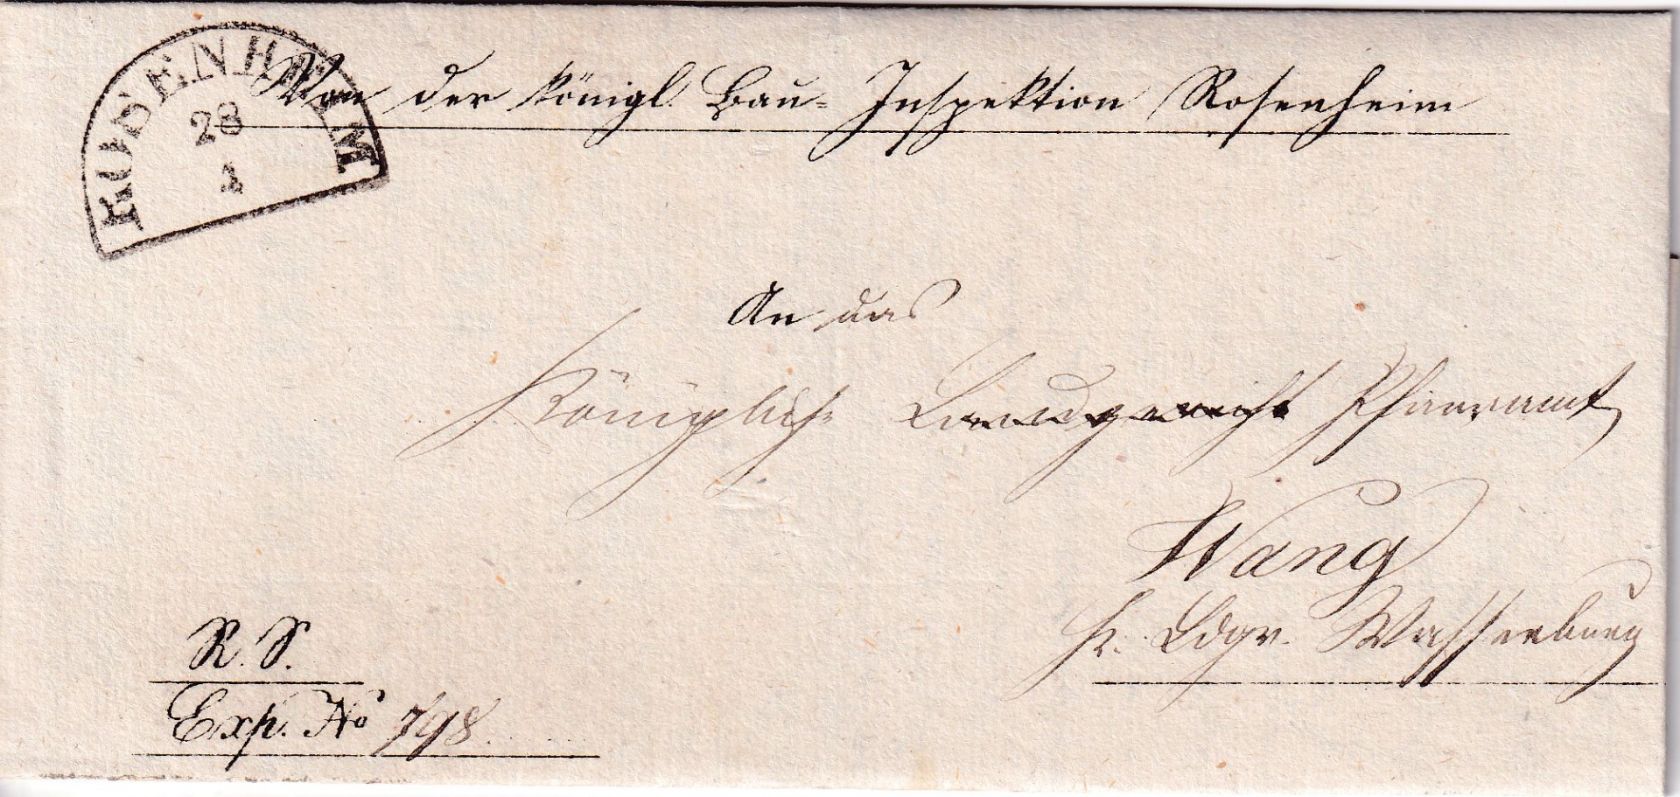 ROSENHEIM
28
1
Von der königl. Bau- Inspektion Rosenheim
An das
Königliche Landgericht Pfarramt
Wang
K. Ldgr. Wasserburg
R. S.
Exp. No 798